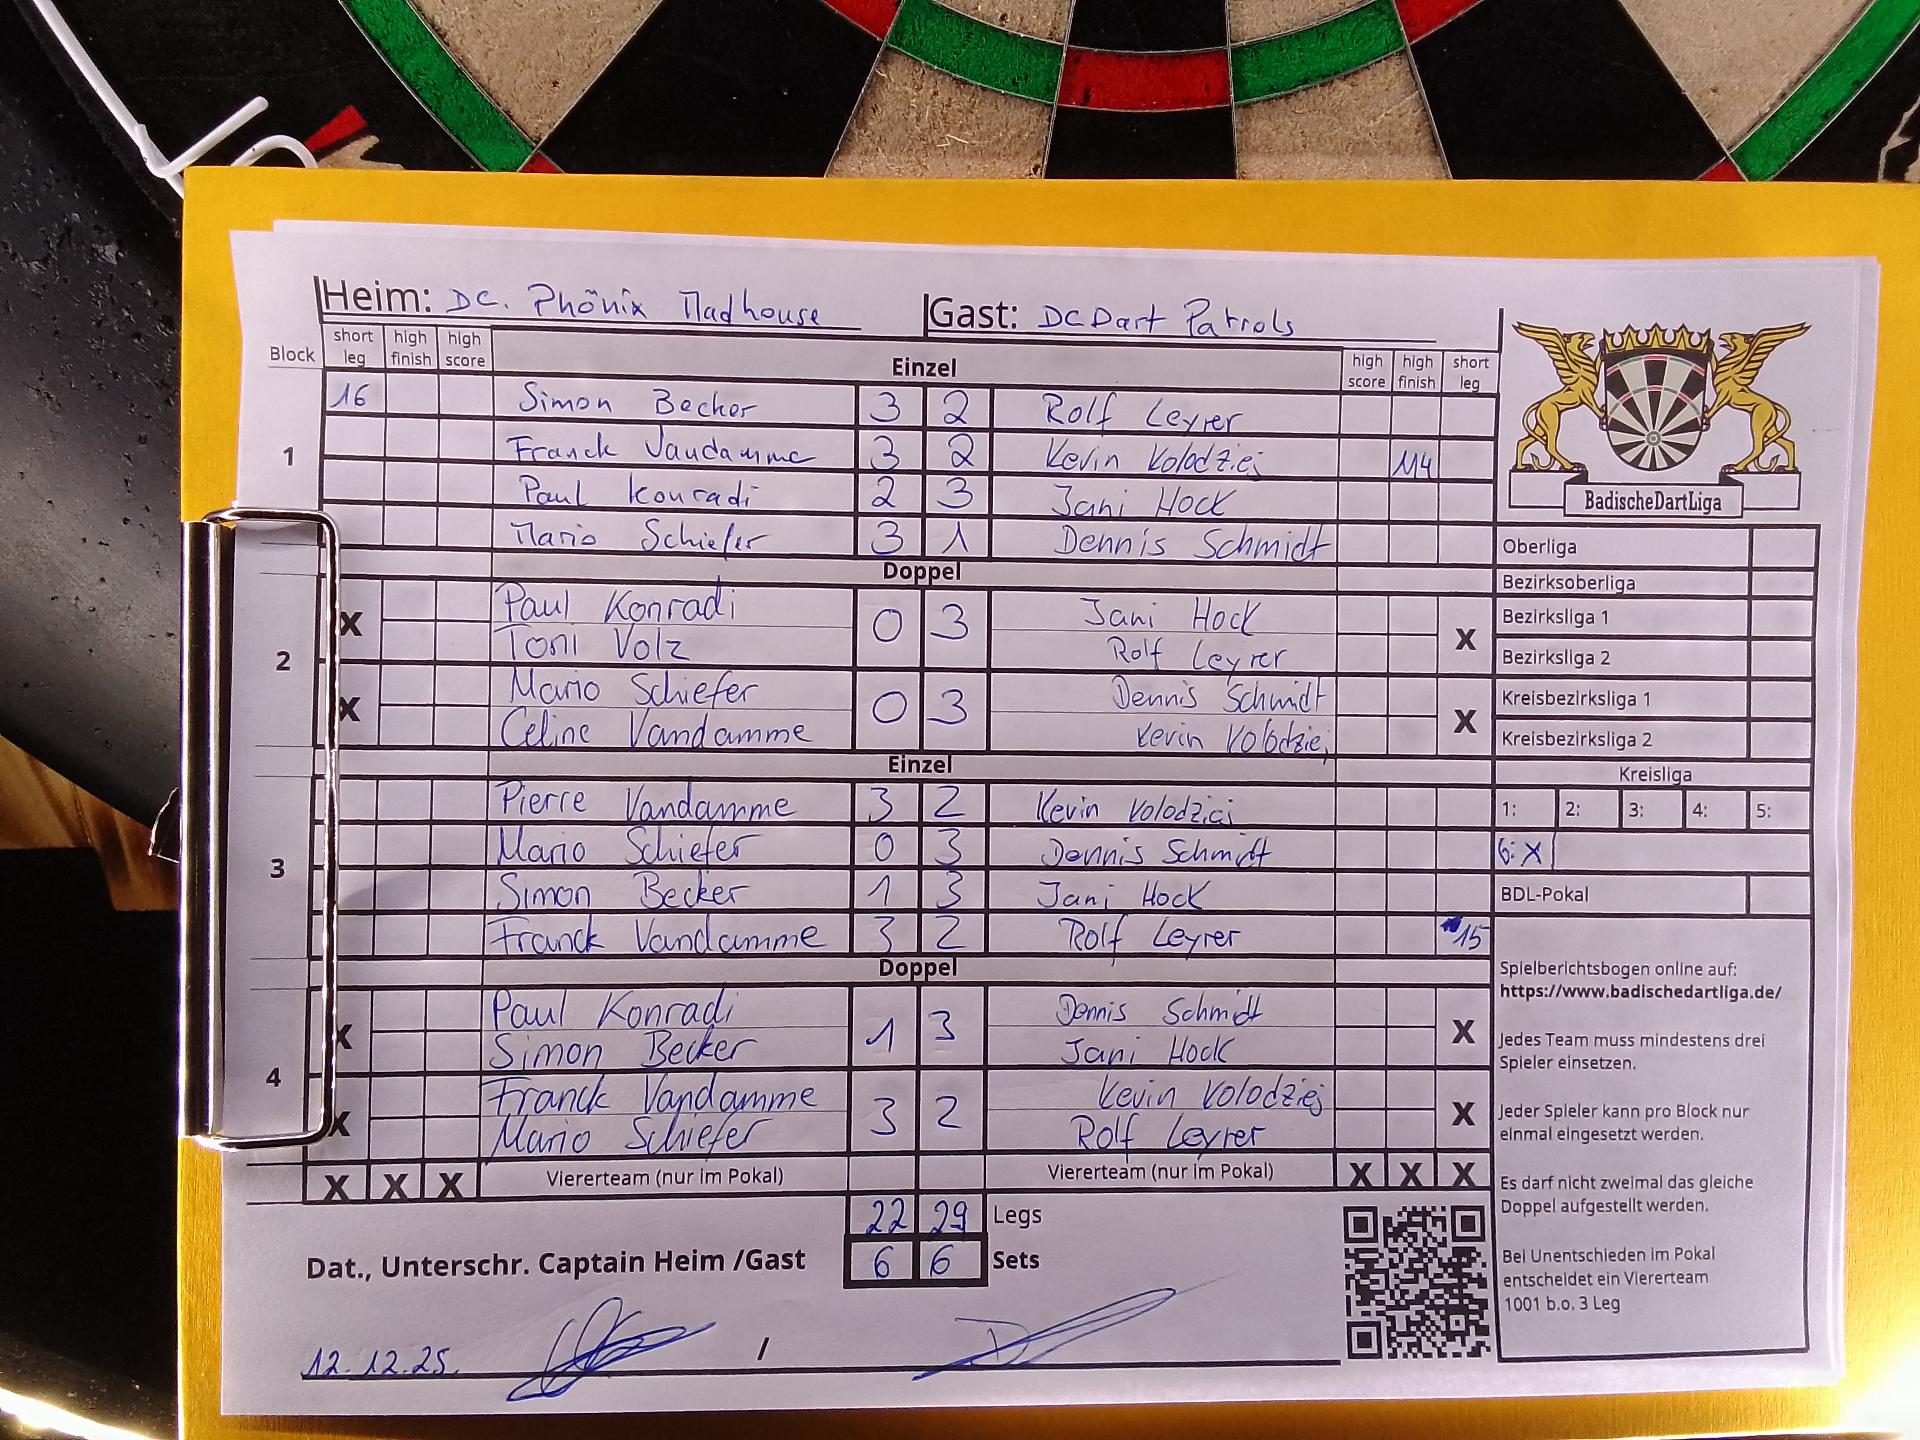 Heim: DC. Phönix Madhouse Gast: DC Dart Patrols
Block short leg high finish high score Einzel high score high finish short leg
1
16 Simon Becker 3 2 Rolf Leyrer
Franck Vandamme 3 2 Kevin Kolodziej 114
Paul Konradi 2 3 Jani Hock
Mario Schiefer 3 1 Dennis Schmidt
Doppel
2
X Paul Konradi 0 3 Jani Hock X
Toni Volz Rolf Leyrer
X Mario Schiefer 0 3 Dennis Schmidt X
Celine Vandamme Kevin Kolodziej
Einzel
3
Pierre Vandamme 3 2 Kevin Kolodziej
Mario Schiefer 0 3 Dennis Schmidt
Simon Becker 1 3 Jani Hock
Franck Vandamme 3 2 Rolf Leyrer 15
Doppel
4
X Paul Konradi 1 3 Dennis Schmidt X
Simon Becker Jani Hock
X Franck Vandamme 3 2 Kevin Kolodziej X
Mario Schiefer Rolf Leyrer
X X X Viererteam (nur im Pokal) Viererteam (nur im Pokal) X X X
22 29 Legs
Dat., Unterschr. Captain Heim /Gast 6 6 Sets
12.12.25. /
BadischeDartLiga
Oberliga
Bezirksoberliga
Bezirksliga 1
Bezirksliga 2
Kreisbezirksliga 1
Kreisbezirksliga 2
Kreisliga
1: 2: 3: 4: 5:
6: X
BDL-Pokal
Spielberichtsbogen online auf:
https://www.badischedartliga.de/
Jedes Team muss mindestens drei
Spieler einsetzen.
Jeder Spieler kann pro Block nur
einmal eingesetzt werden.
Es darf nicht zweimal das gleiche
Doppel aufgestellt werden.
Bei Unentschieden im Pokal
entscheidet ein Viererteam
1001 b.o. 3 Leg